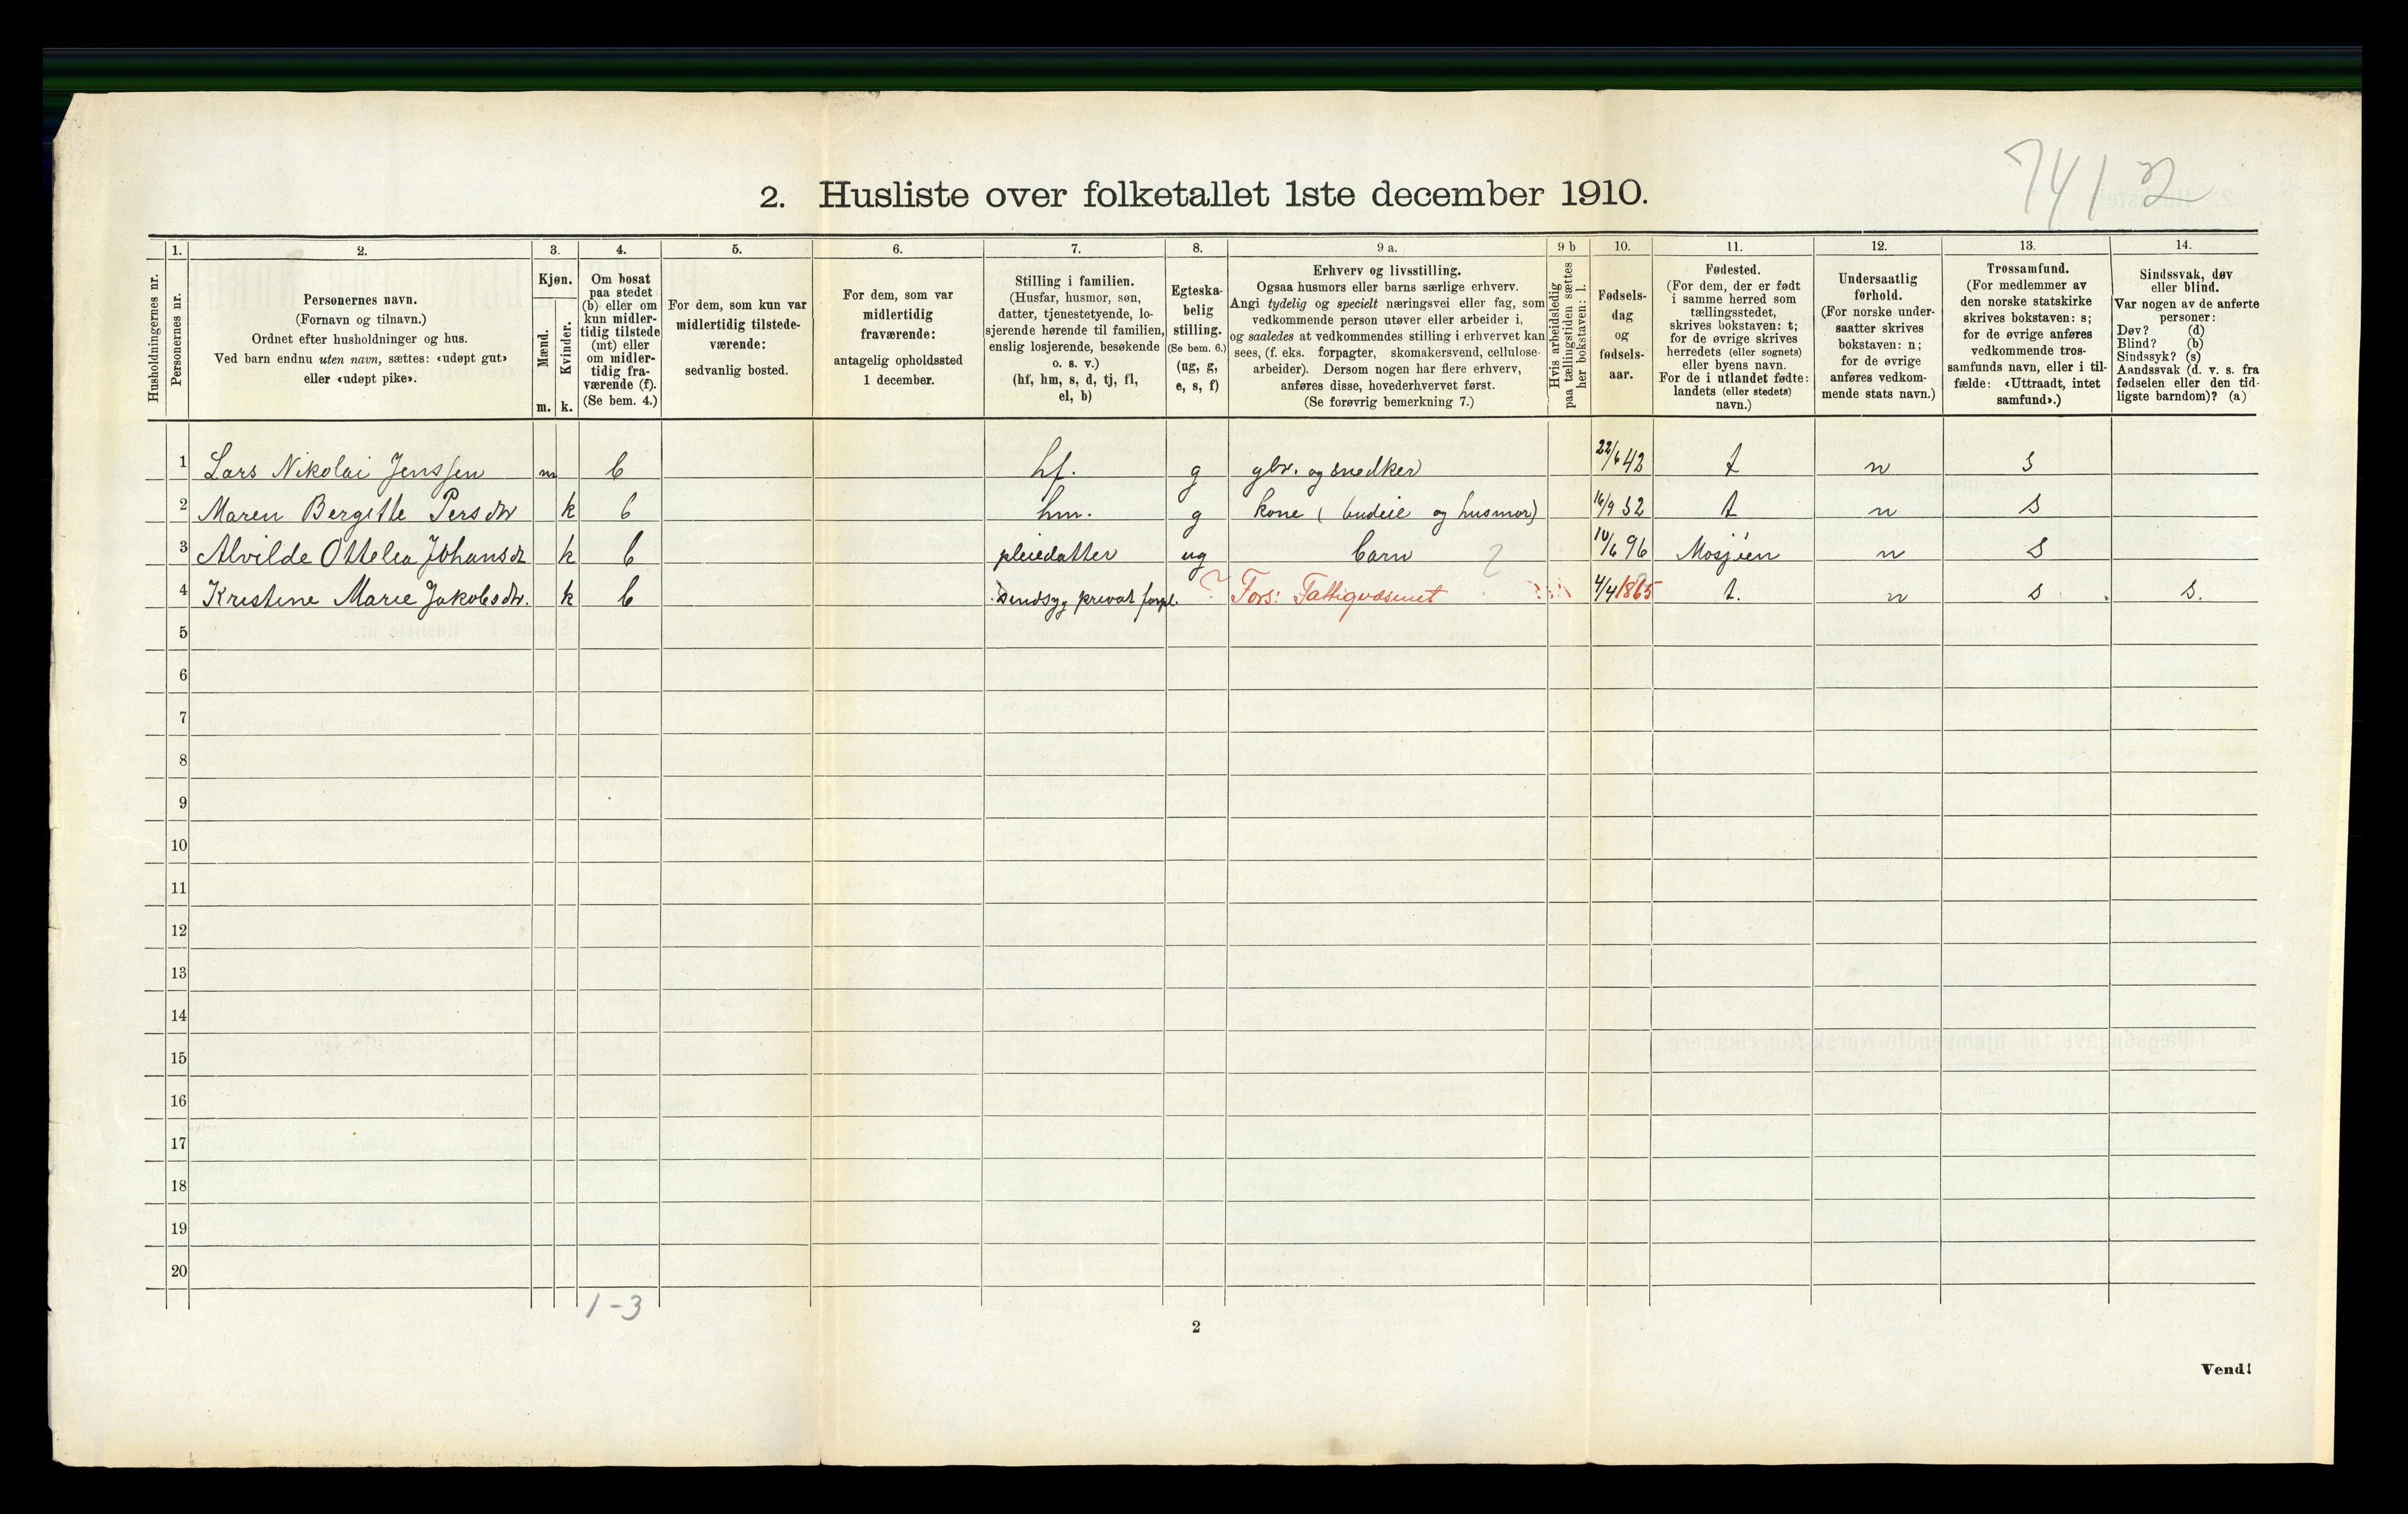 7412
2. Husliste over folketallet 1ste december 1910.
Husholdningernes nr.
1.
Personernes nr.
2.
Personernes navn.
(Fornavn og tilnavn.)
Ordnet efter husholdninger og hus.
Ved barn endnu uten navn, sættes: «udøpt gut»
eller «udøpt pike».
3.
Kjøn.
Mænd.
m.
Kvinder.
k.
4.
Om bosat
paa stedet
(b) eller om
kun midler-
tidig tilstede
(mt) eller
om midler-
tidig fra-
værende (f).
(Se bem. 4.)
5.
For dem, som kun var
midlertidig tilstede-
værende:
sedvanlig bosted.
6.
For dem, som var
midlertidig
fraværende:
antagelig opholdssted
1 december.
7.
Stilling i familien.
(Husfar, husmor, søn,
datter, tjenestetyende, lo-
sjerende hørende til familien,
enslig losjerende, besøkende
o. s. v.)
(hf, hm, s, d, tj, fl,
el, b)
8.
Egteska-
belig
stilling.
(Se bem. 6.)
(ug, g,
e, s, f)
9 a.
Erhverv og livsstilling.
Ogsaa husmors eller barns særlige erhverv.
Angi tydelig og specielt næringsvei eller fag, som
vedkommende person utøver eller arbeider i,
og saaledes at vedkommendes stilling i erhvervet kan
sees, (f. eks. forpagter, skomakersvend, cellulose-
arbeider). Dersom nogen har flere erhverv,
anføres disse, hovederhvervet først.
(Se forøvrig bemerkning 7.)
9 b
Hvis arbeidsledig
paa tællingstiden sættes
her bokstaven: l.
10.
Fødsels-
dag
og
fødsels-
aar.
11.
Fødested.
(For dem, der er født
i samme herred som
tællingsstedet,
skrives bokstaven: t;
for de øvrige skrives
herredets (eller sognets)
eller byens navn.
For de i utlandet fødte:
landets (eller stedets)
navn.)
12.
Undersaatlig
forhold.
(For norske under-
saatter skrives
bokstaven: n;
for de øvrige
anføres vedkom-
mende stats navn.)
13.
Trossamfund.
(For medlemmer av
den norske statskirke
skrives bokstaven: s;
for de øvrige anføres
vedkommende tros-
samfunds navn, eller i til-
fælde: «Uttraadt, intet
samfund».)
14.
Sindssvak, døv
eller blind.
Var nogen av de anførte
personer:
Døv? (d)
Blind? (b)
Sindssyk? (s)
Aandssvak (d. v. s. fra
fødselen eller den tid-
ligste barndom)? (a)
1 Lars Nikolai Jenssen m b hf. g gbr. og snedker 22/6 42 t n s
2 Maren Bergitte Persdtr k b hm. g kone (budeie og husmor) 16/9 32 t n s
3 Alvilde Ottelia Johansdt k b pleiedatter ug barn 10/6 96 Mosjøen n s
4 Kristine Marie Jakobsdtr. k b sindsyg privat forpl. ? Fors: Fattigvæsenet 4/4 1865 t. n s s.
5
6
7
8
9
10
11
12
13
14
15
16
17
18
19
20
1-3
2
Vend!